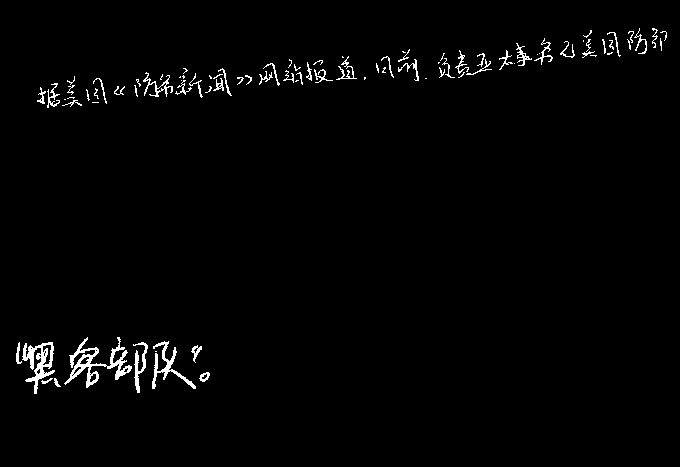 据美国《防务新闻》网站报道，目前，负责亚太事务的美国防部
“黑客部队”。